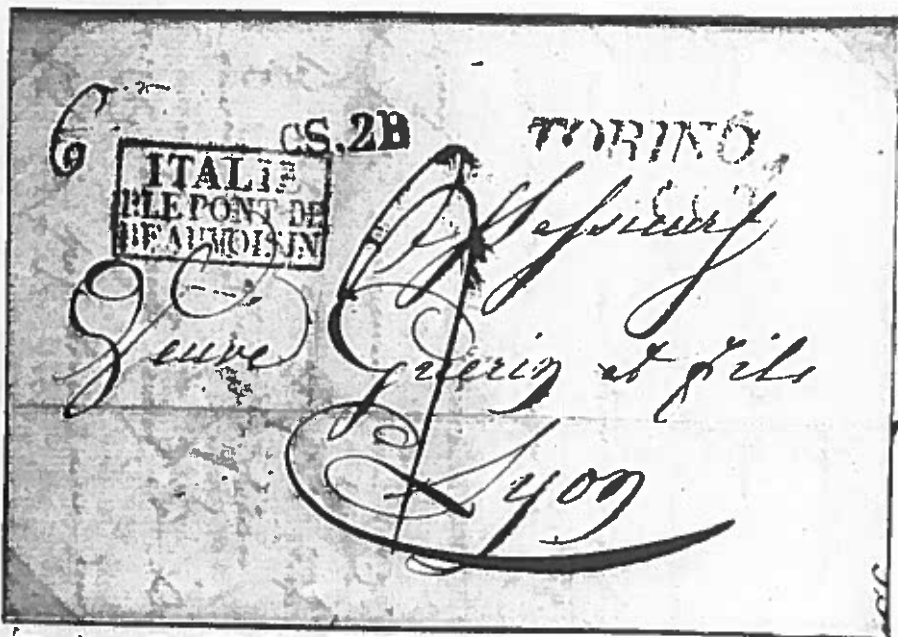 6
CS.2B
TORINO
ITALIE
P.LE PONT DE
BEAUVOISIN
Messieurs
Veuve Guerin et fils
Lyon